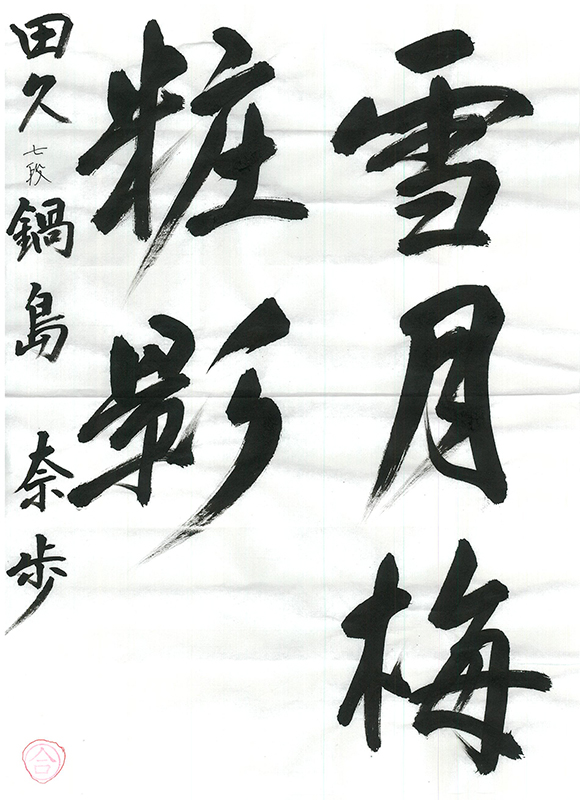 雪月梅
粧影
田久 七段 鍋島 奈歩
合